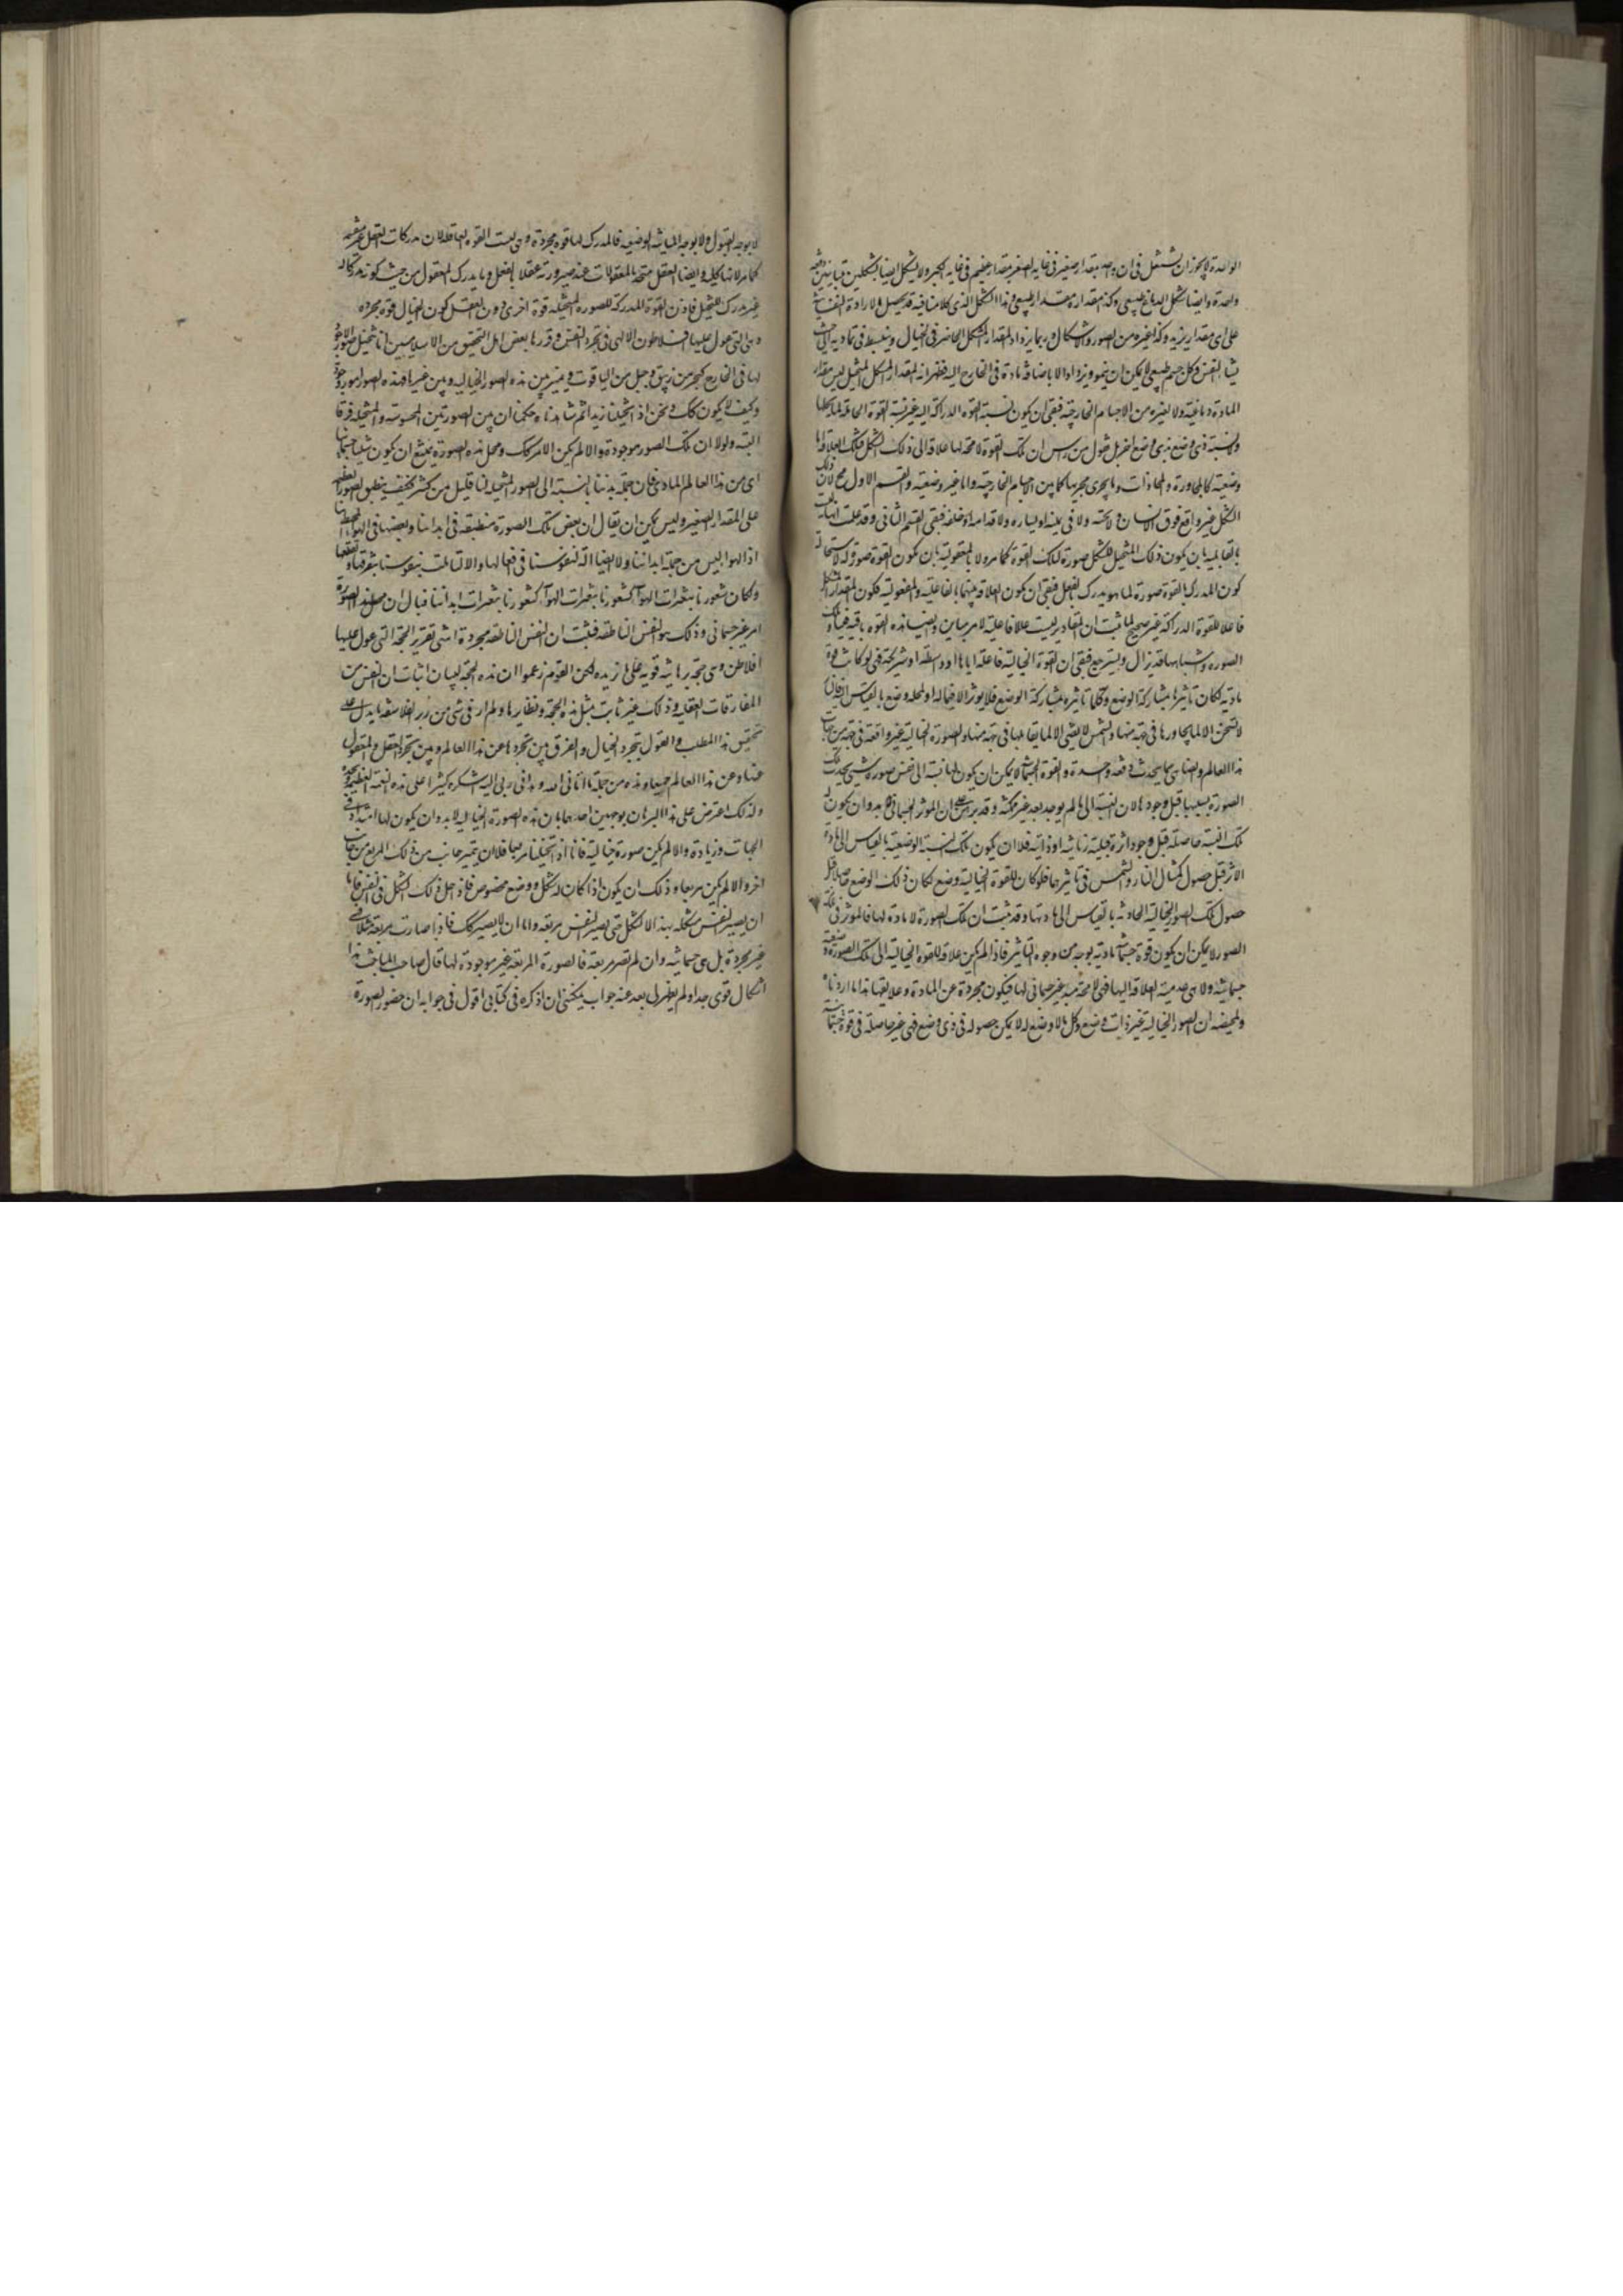 الواحدة لا يجوز ان يتشكل في آن واحد بمقدار صغير في غاية الصغر بمقدار عظيم في غاية الكبر ولا يشكل ايضا بشكلين متباينين دفعة
واحدة وايضا شكل الدماغ طبيعي وكذا مقداره مقدار طبيعي وهذا الشكل الذي كلامنا فيه قد يحصل بالارادة النفسانية
على اي مقدار يريد وكذا غيره من الصور والاشكال وربما يزداد المقدار المشكل الحاضر في الخيال وينبسط في تماديه الى حيث
يشاء النفس وكل جسم طبيعي لا يمكن ان ينمو ويزداد الا باضافة مادة في الخارج اليه فظهر انه لمقدار الشكل المتخيل ليس مقدار
المادة دماغية ولا لغيره من الاجسام الخارجية فبقي ان يكون نسبة القوة الدراكة اليه غير نسبة القوة الحاملة لما يحلها
ولا نسبة ذي وضع بذي وضع آخر بل نقول من رأس ان تلك القوة لا محالة لها علاقة الى ذلك الشكل فتلك العلاقة اما
وضعية كالمجاورة والمحاذات وما يجري مجريها كما بين الاجسام الخارجية واما غير وضعية والقسم الاول محال لان ذلك
الشكل غير واقع فوق الانسان ولا تحته ولا في يمينه او يساره ولا قدامه او خلفه فبقي القسم الثاني وقد علمت انها ليست
بالقابلية بان يكون ذلك المتخيل المشكل صورة لتلك القوة كما مر ولا بالمقبولية بان يكون القوة صورة له لاستحالة
كون المدرك بالقوة صورة لما هو يدرك بالفعل فبقي ان يكون العلاقة بينهما بالفاعلية والمفعولية فكون المقدار المشكل
فاعلا للقوة الدراكة غير صحيح لما ثبت ان المقادير ليست عللا فاعلية لامر مباين وايضا هذه القوة باقية فينا وتلك
الصورة واشباهها قد يزال ويسترجع فبقي ان القوة الخيالية فاعلة اياها او واسطة او شريكة فهي لو كانت قوة
مادية لكان تاثيرها بمشاركة الوضع وكلما تاثيره بمشاركة الوضع فلا يؤثر الا فيما له او لمحله وضع بالقياس اليه فان النار
لا تسخن الا لما يجاورها في جهة منها والشمس لا يضيء الا لما يقابلها في جهة منها والصورة الخيالية غير واقعة في جهة من جهات
هذا العالم والعناصر مما يحدث دفعة واحدة والقوة الجسمانية لا يمكن ان يكون لها نسبة الى نفس صورة شيء يحدث تلك
الصورة بسببها قبل وجودها لان النسبة الى ما لم يوجد بعد غير ممكنة وقد برهن على ان المؤثر الجسماني لا بد وان يكون له
تلك النسبة حاصلة قبل وجود اثره قبلية زمانية او ذاتية فلا ان يكون تلك النسبة الوضعية بالقياس الى مادة
الاثر قبل حصول كمثال النار والشمس في تاثيرهما فلو كان للقوة الخيالية وضع لكان ذلك الوضع حاصلا قبل
حصول تلك الصورة الخيالية الحادثة بالقياس الى مادتها وقد ثبت ان تلك الصورة لا مادة لها فالمؤثر في تلك
الصور لا يمكن ان يكون قوة جسمانية مادية بوجه من وجوه التاثير فاذا لم يكن علاقة للقوة الخيالية الى تلك الصورة وضعية
جسمانية ولا هي عديمة العلاقة اليها فهي لا محالة مبدء غير جسماني لها فيكون مجردة عن المادة وعلائقها هذا ما اردناه
وتلخيصه ان الصور الخيالية غير ذات وضع وكل ما لا وضع له لا يمكن حصوله في ذي وضع فهي غير حاصلة في قوة جسمانية
لا بوجه القبول ولا بوجه المباينة الوضعية فالمدرك لها قوة مجردة وهي ليست القوة العاقلة لان مدركات العقل غير منقسمة
كما مر لانها كلية وايضا العقل متحد بالمعقولات عند صيرورته عقلا بالفعل وما يدرك المعقول من حيث كونه مدركا له
غير مدرك المتخيل فاذن القوة المدركة للصورة المتخيلة قوة اخرى دون العقل كون الخيال قوة مجردة
وهي التي عول عليها افلاطون الالهي في تجرد النفس وقررها بعض اهل التحقيق من الاسلاميين انا نتخيل صورا لا وجود
لها في الخارج كبحر من زيبق وجبل من الياقوت ونميز بين هذه الصور الخيالية وبين غيرها فهذه الصور امور وجودية
وكيف لا يكون كك ونحن اذا تخيلنا زيدا ثم شاهدناه حكمنا ان بين الصورتين المحسوسة والمتخيلة فرقا
البتة ولولا ان تلك الصور موجودة والا لم يكن الامر كك ومحل هذه الصورة يمتنع ان يكون شيئا جسمانيا
اي من هذا العالم المادي فان جملة بدننا بالنسبة الى الصور المتخيلة لنا قليل من كثير فكيف ينطبق الصور العظيمة
على المقدار الصغير وليس يمكن ان يقال ان بعض تلك الصورة منطبقة في ابداننا وبعضها في الهواء المحيط بنا
اذ الهوا ليس من جملة ابداننا ولا ايضا آلة لنفوسنا في افعالها والا لتالمت نفوسنا بتفرقها وتقطعها
ولكان شعورنا بتغيرات الهواء كشعورنا بتغيرات ابداننا فبان ان محل هذه الصورة
امر غير جسماني وذلك هو النفس الناطقة فثبت ان النفس الناطقة مجردة انتهى تقرير الحجة التي عول عليها
افلاطن وهي حجة برهانية قوية على ما نريده لكن القوم زعموا ان هذه الحجة لبيان اثبات ان النفس من
المفارقات العقلية وذلك غير ثابت بمثل هذه الحجة ونظايرها ولم ار في شيء من زبر الفلاسفة ما يدل على
تحقيق هذا المطلب والقول بتجرد الخيال والفرق بين تجردها عن هذا العالم وبين تجرد العقل والمعقول
عنها وعن هذا العالم جميعا وهذه من جملة ما آتاني الله وهداني ربي اليه اشكره كثيرا على هذه النعمة العظيمة ونحمده
ولذلك اعترض على هذا البرهان بوجهين احدهما بان هذه الصورة الخيالية لا بد وان يكون لها امتداد في
الجهات وزيادة والا لم يكن صورة خيالية فانا اذا تخيلنا مربعا فلا ان يتميز جانب من ذلك المربع من جانب
اخر والا لم يكن مربعا وذلك ان يكون اذا كان له شكل ووضع مخصوص فاذا حل ذلك الشكل في النفس فاما
ان يصير النفس مشكلة بهذا الشكل حتى يصير النفس مربعة واما ان لا يصير كك فاذا صارت مربعة مثلا فهي
غير مجردة بل هي جسمانية وان لم تصر مربعة فالصورة المربعة غير موجودة لها قال صاحب المباحث هذا
اشكال قوي جدا ولم يظهر لي بعد عنه جواب يمكنني ان اذكره في كتابي اقول في جوابه ان حضور الصورة